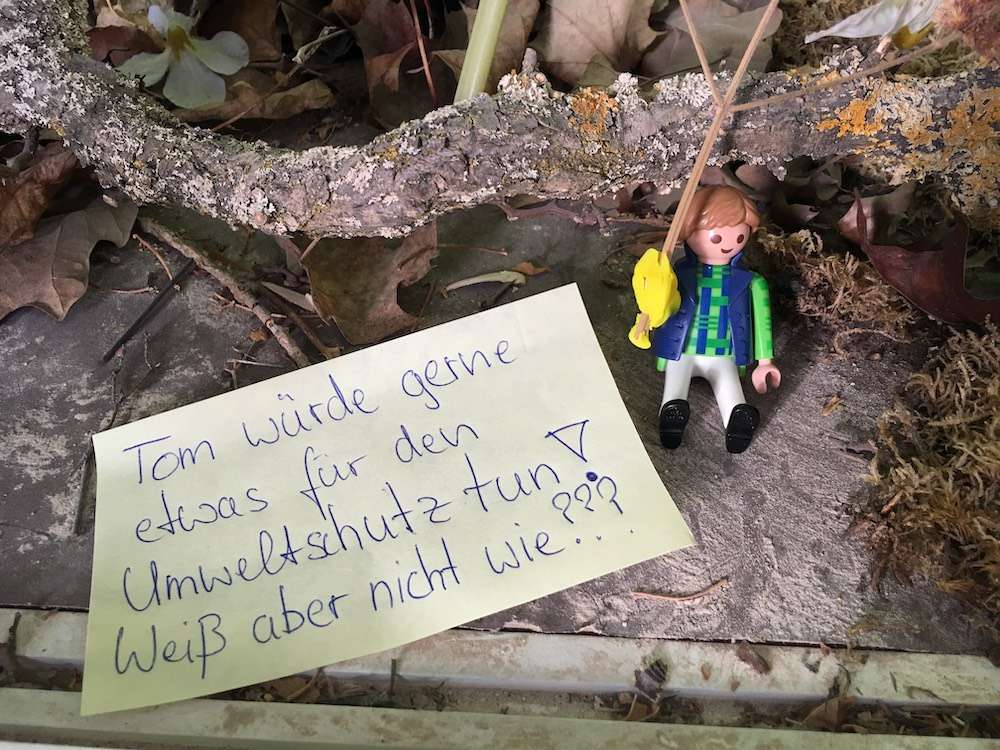 Tom würde gerne
etwas für den
Umweltschutz tun!
Weiß aber nicht wie???